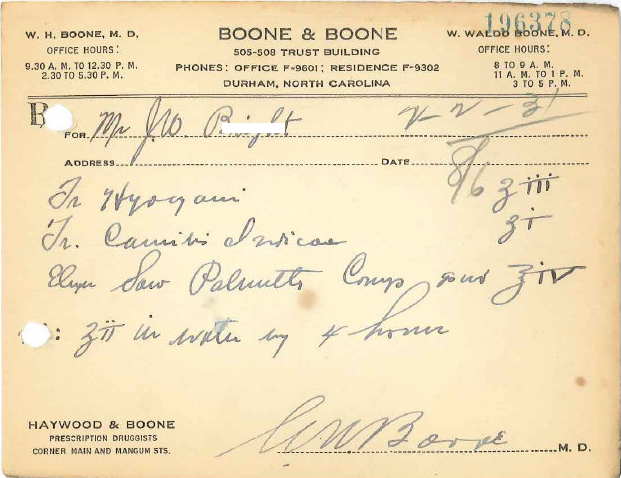 196378
W. H. BOONE, M. D.
OFFICE HOURS:
9.30 A. M. TO 12.30 P. M.
2.30 TO 5.30 P. M.
BOONE & BOONE
505-508 TRUST BUILDING
PHONES: OFFICE F-9601; RESIDENCE F-9302
DURHAM, NORTH CAROLINA
W. WALDO BOONE, M. D.
OFFICE HOURS:
8 TO 9 A. M.
11 A. M. TO 1 P. M.
3 TO 5 P. M.
FOR Mr J.W. 2-2-31
ADDRESS DATE
Tr Hyoscyami ʒiii
Tr. Cannibis Indicae ʒi
Elixir Saw Palmetto Comp ʒiv
: ʒii in water every 4 hours
HAYWOOD & BOONE
PRESCRIPTION DRUGGISTS
CORNER MAIN AND MANGUM STS.
W. Boone M. D.